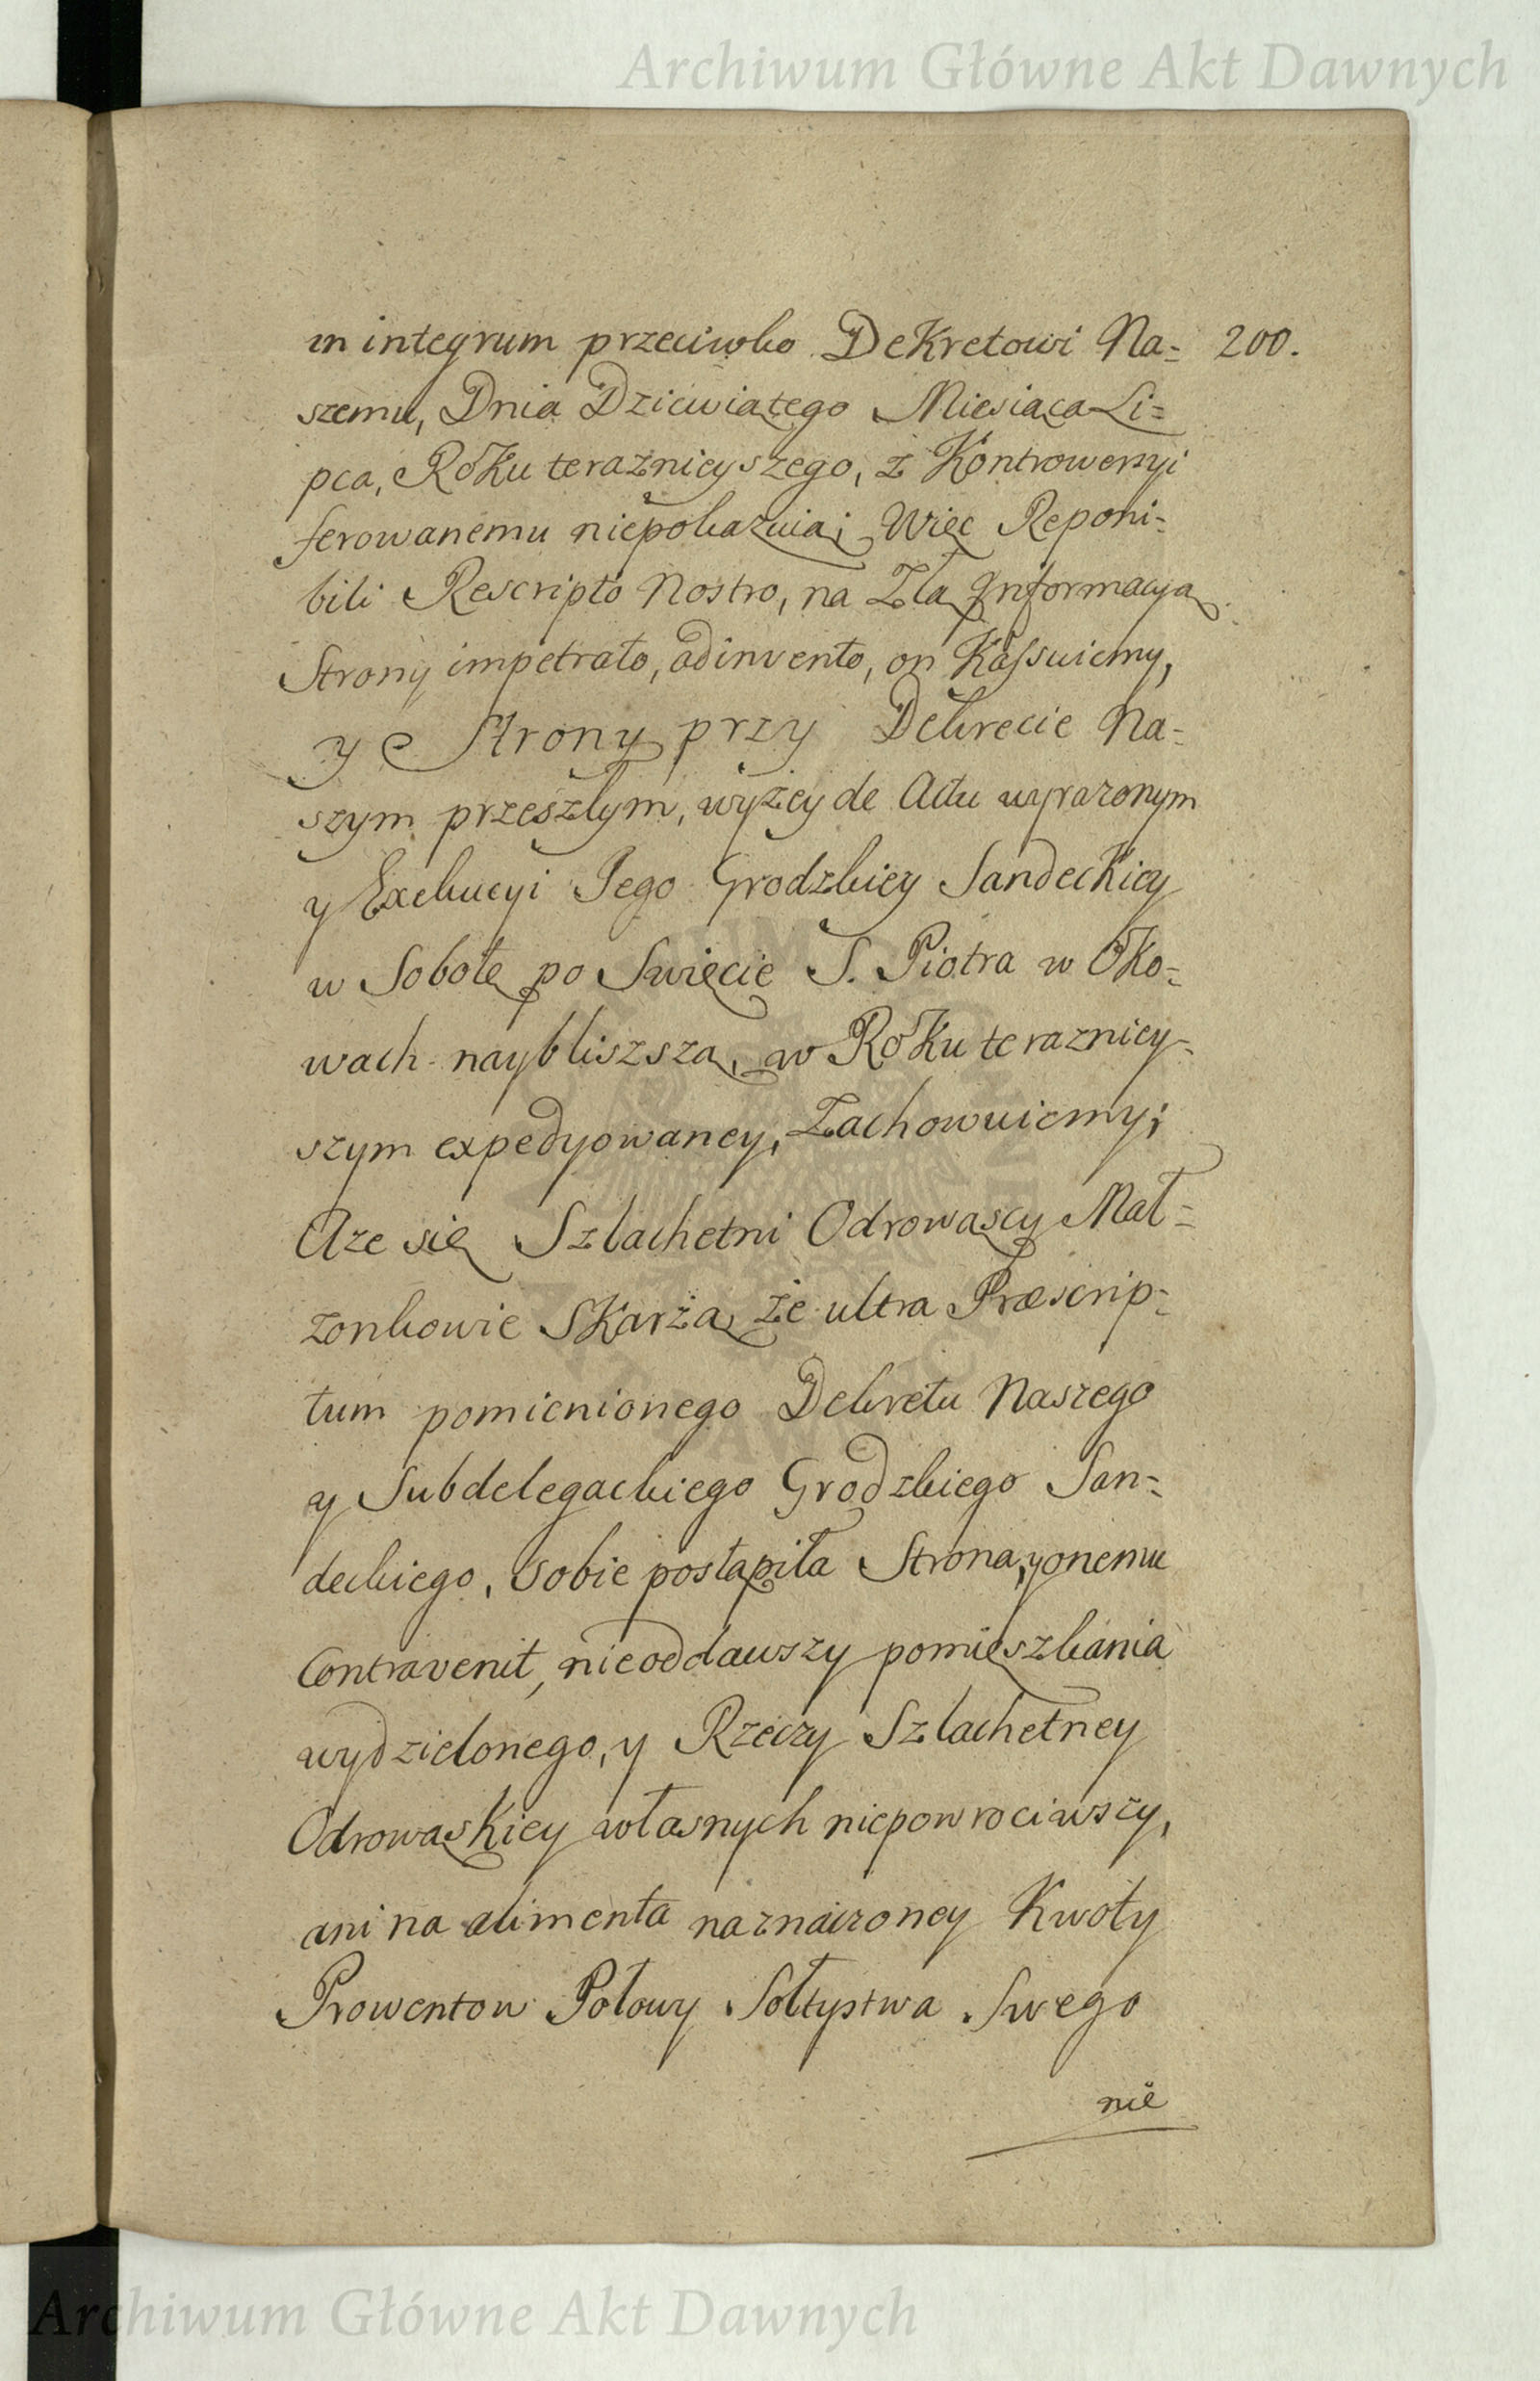 Archiwum Główne Akt Dawnych
in integrum przeciwko DeKretowi Na= 200.
szemu, Dnia Dziewiątego Miesiąca Li=
pca, RoKu teraznieyszego, z Kontrowersyi
ferowanemu niepokazuią; Więc Reponi=
bili Rescripto Nostro, na Złą Informacyą
Strony impetrato, adinvento, on Kassuiemy,
y e Strony przy Dekrecie Na=
szym przeszłym, wyżey de Actu wyrazonym
y Exekucyi Jego Grodzkiey SandecKiey
w Sobotę po Swięcie S. Piotra w OKo=
wach naybliszszą, w RoKu terazniey=
szym expedyowaney, Zachowuiemy;
Aze się Szlachetni Odrowąscy Mał=
zonkowie SKarżą, że ultra Præscrip=
tum pomienionego Dekretu Naszego
y Subdelegackiego Grodzkiego San=
deckiego, sobie postąpiła Strona, y onemu
Contravenit, nieoddawszy pomieszkania
wydzielonego, y Rzeczy Szlachetney
OdrowąsKiey własnych niepowrociwszy,
ani na alimenta naznaczoney Kwoty
Prowentow Połowy Sołtystwa Swego
nie
Archiwum Główne Akt Dawnych